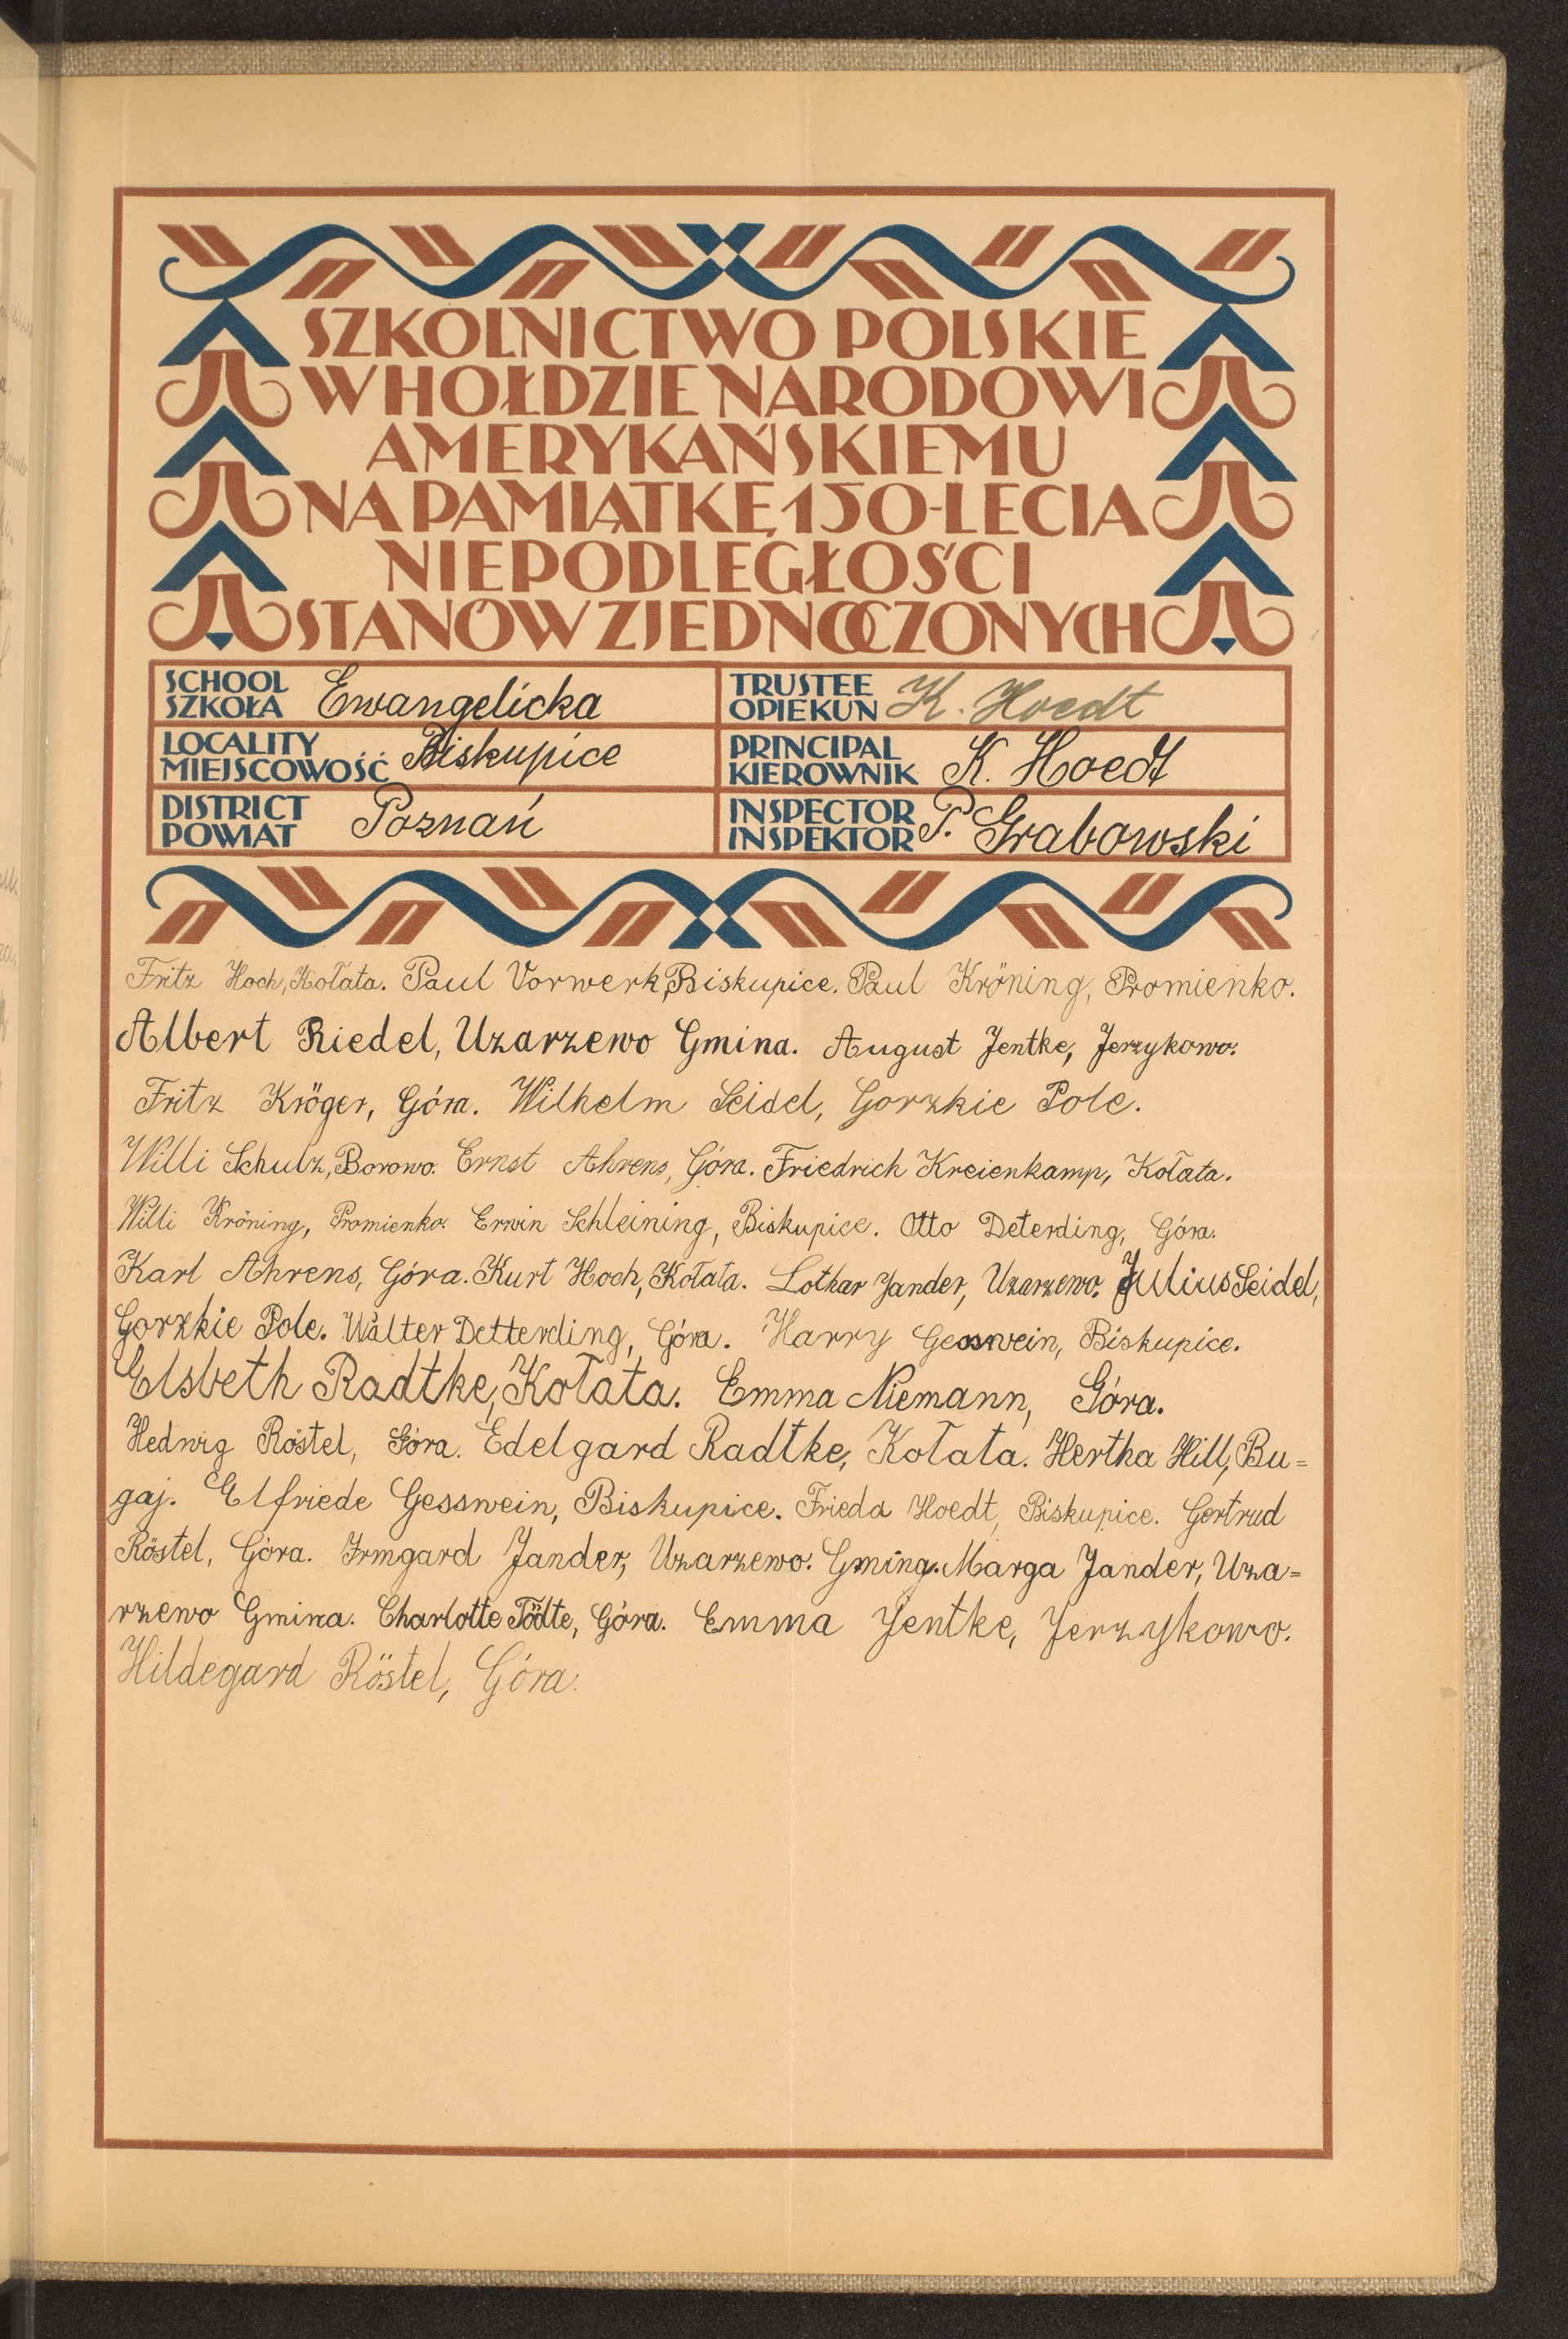 SZKOLNICTWO POLSKIE
W HOŁDZIE NARODOWI
AMERYKAŃSKIEMU
NA PAMIĄTKĘ 150-LECIA
NIEPODLEGŁOŚCI
STANÓW ZJEDNOCZONYCH
SCHOOL
SZKOŁA Ewangelicka
TRUSTEE
OPIEKUN K. Hoedt
LOCALITY
MIEJSCOWOŚĆ Biskupice
PRINCIPAL
KIEROWNIK K. Hoedt
DISTRICT
POWIAT Poznań
INSPECTOR
INSPEKTOR P. Grabowski
Fritz Hoch, Kołata. Paul Vorwerk, Biskupice. Paul Kröning, Promienko.
Albert Riedel, Uzarzewo Gmina. August Jentke, Jerzykowo.
Fritz Kröger, Góra. Wilhelm Seidel, Gorzkie Pole.
Willi Schulz, Borowo. Ernst Ahrens, Góra. Friedrich Kreienkamp, Kołata.
Willi Kröning, Promienko. Erwin Schleining, Biskupice. Otto Deterding, Góra.
Karl Ahrens, Góra. Kurt Hoch, Kołata. Lothar Jander, Uzarzewo. Julius Seidel,
Gorzkie Pole. Walter Detterding, Góra. Harry Gesswein, Biskupice.
Elsbeth Radtke, Kołata. Emma Niemann, Góra.
Hedwig Röstel, Góra. Edelgard Radtke, Kołata. Hertha Hill, Bu=
gaj. Elfriede Gesswein, Biskupice. Frieda Hoedt, Biskupice. Gertrud
Röstel, Góra. Irmgard Jander, Uzarzewo. Gmina. Marga Jander, Uza=
rzewo Gmina. Charlotte Tödte, Góra. Emma Jentke, Jerzykowo.
Hildegard Röstel, Góra.